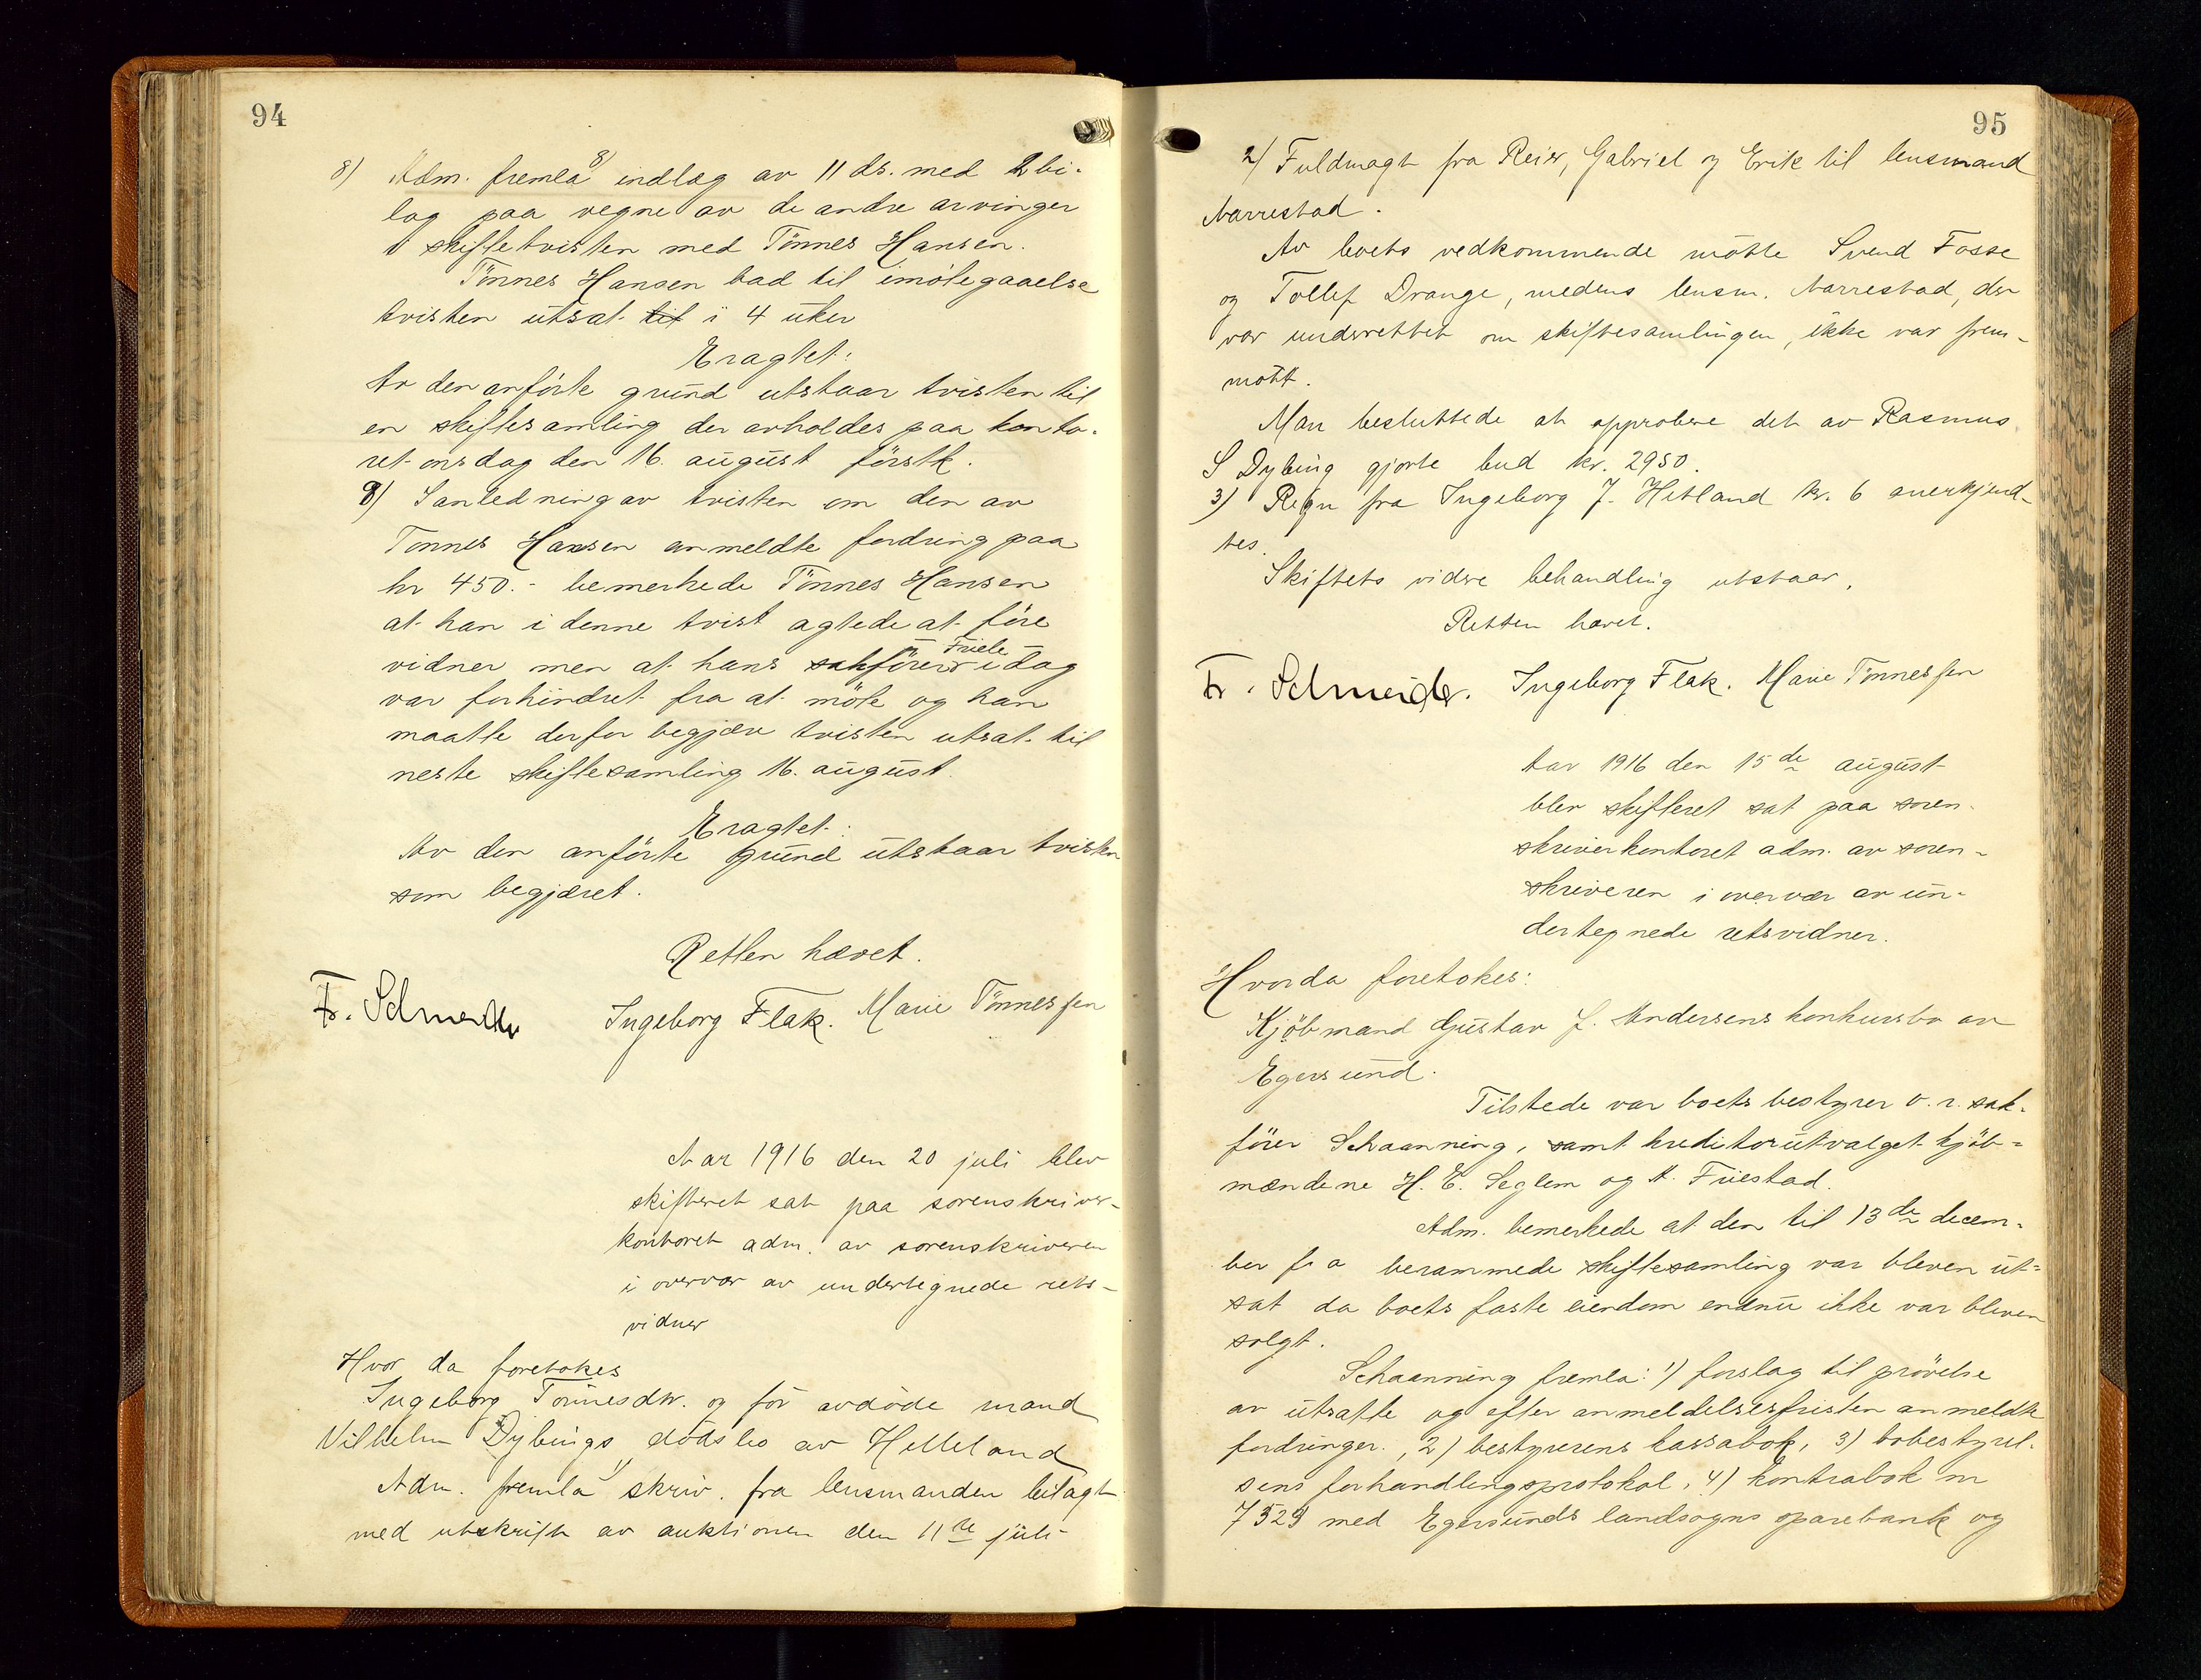 94
8) Adm. fremla 8) indlæg av 11 ds. med 2 bi-
lag paa vegne av de andre arvinger
i skiftetvisten med Tönnes Hansen.
Tönnes Hansen bad til imötegaaelse
tvisten utsat til i 4 uker
Eragtet:
Av den anförte grund utstaar tvisten til
en skiftesamling der avholdes paa konto-
ret onsdag den 16. august förstk.
9) I anledning av tvisten om den av
Tönnes Hansen anmeldte fordring paa
kr 450.- bemerkede Tönnes Hansen
at han i denne tvist agtede at före
vidner men at hans sakförer Friele idag
var forhindret fra at möte og han
maatte derfor begjære tvisten utsat til
neste skiftesamling 16. august.
Eragtet:
Av den anförte grund utstaar tvisten
som begjæret.
Retten hævet.
Fr. Schneider Ingeborg Flak. Marie Tönnessen
Aar 1916 den 20 juli blev
skifteret sat paa sorenskriver-
kontoret adm. av sorenskriveren
i overvær av undertegnede rets-
vidner
Hvor da foretokes
Ingeborg Tönnesdtr. og for avdöde mand
Vilhelm Dybings dödsbo av Helleland
Adm. fremla 1) skriv. fra lensmanden bilagt
med utskrift av auktionen den 11te juli
95
2) Fuldmagt fra Reier, Gabriel og Erik til lensmand
Narrestad.
Av boets vedkommende mötte Svend Fosse
og Tollef Drange, medens lensm. Narrestad, der
var underrettet om skiftesamlingen, ikke var frem-
mött.
Man besluttede at approbere det av Rasmus
S Dybing gjorte bud kr. 2950.
3) Regn fra Ingeborg J. Hetland kr. 6 anerkjend-
tes.
Skiftets videre behandling utstaar.
Retten hævet.
Fr. Schneider. Ingeborg Flak. Marie Tönnessen
Aar 1916 den 15de august
blev skifteret sat paa soren-
skriverkontoret adm. av soren-
skriveren i overvær av un-
dertegnede retsvidner.
Hvorda foretokes:
Kjöbmand Gustav J. Andersens konkursbo av
Egersund.
Tilstede var boets bestyrer o.r. sak-
förer Schaanning, samt kreditorutvalget kjöb-
mændene H. E. Seglem og A. Fuestad.
Adm. bemerkede at den til 13de decem-
ber f. a berammede skiftesamling var bleven ut-
sat da boets faste eiendom endnu ikke var bleven
solgt.
Schaanning fremla: 1) forslag til prövelse
av utsatte og efter anmeldelsesfristen anmeldte
fordringer, 2) bestyrerens kassabok, 3) bobestyrel-
sens forhandlingsprotokol, 4) kontrabok nr
7529 med Egersunds landsogns sparebank og